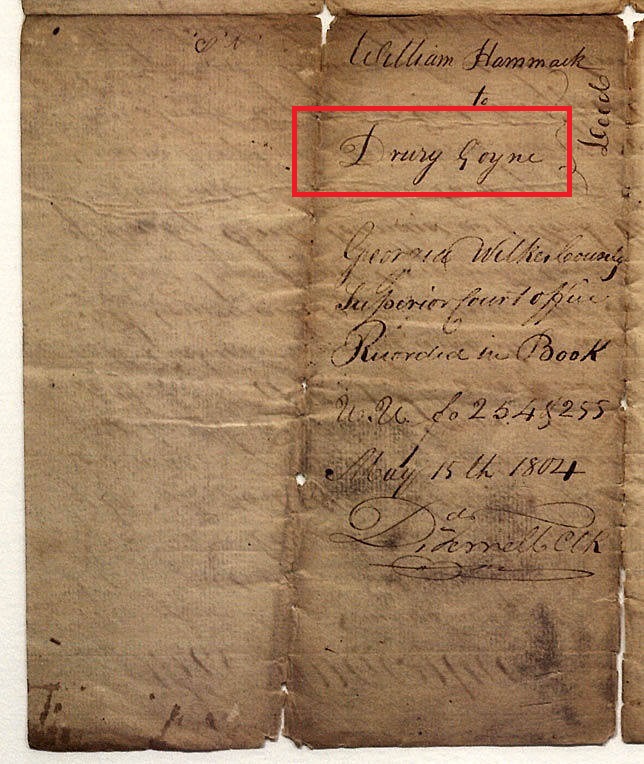 William Hammack
to
Deed
Drury Goyne
Georgia Wilkes County
Superior Court office
Recorded in Book
U.U. fo 254 & 255
May 15th 1804
D. Terrell Clk